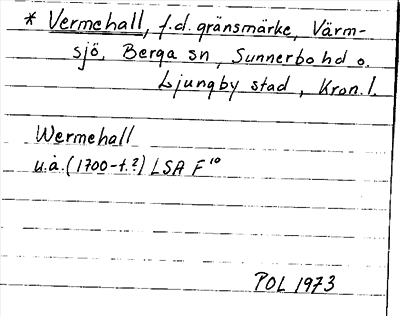 * Vermehall, f.d. gränsmärke, Värm-
sjö, Berga sn, Sunnerbo hd o.
Ljungby stad, Kron. l.
Wermehall
u.å. (1700-t.?) LSA F¹⁰
POL 1973